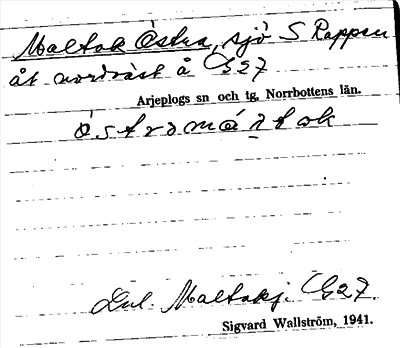 Maltak Östra, sjö S Rappen
åt nordväst å G27
Arjeplogs sn och tg, Norrbottens län.
ȯstrȧmáltak
Dul. Maltakj. G27.
Sigvard Wallström, 1941.